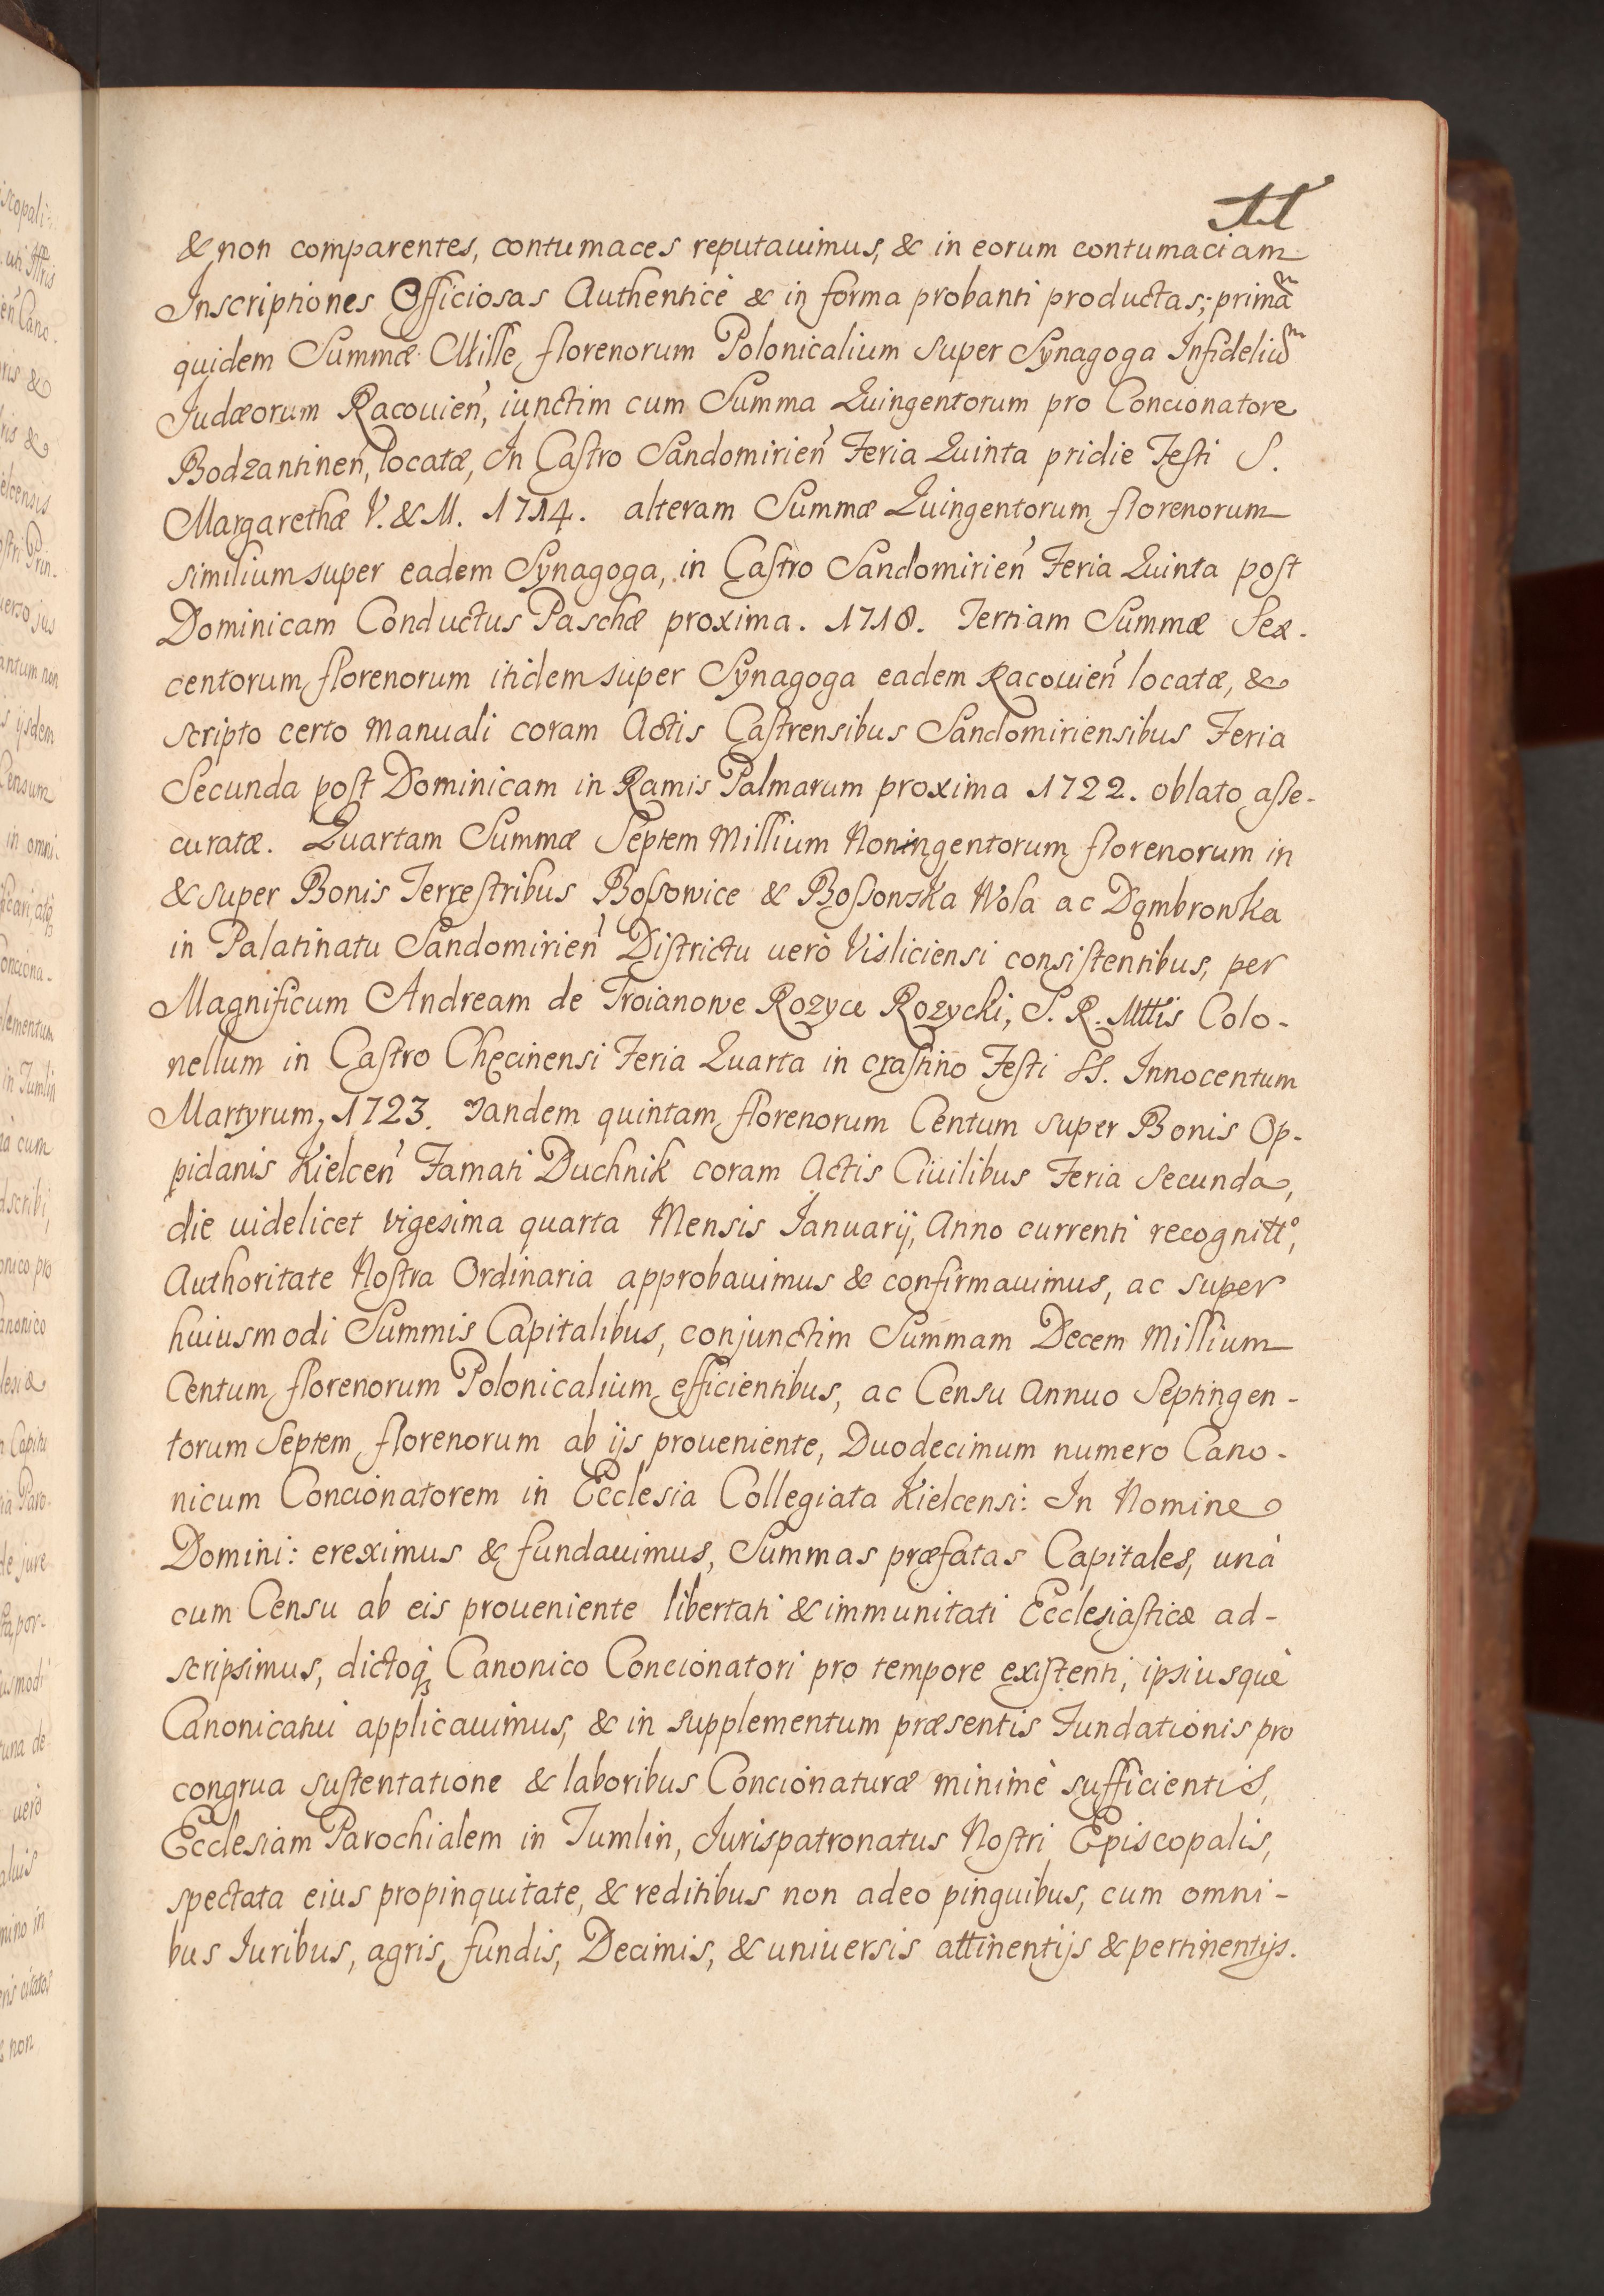 11
& non comparentes, contumaces reputauimus, & in eorum contumaciam
Inscriptiones Officiosas Authenticè & in forma probanti productas; primã
quidem Summæ Mille florenorum Polonicalium super Synagoga Infideliũ
Iudæorum Racouień, iunctim cum Summa Quingentorum pro Concionatore
Bodzantineń, locatæ, In Castro Sandomirień Feria Quinta pridie Festi S.
Margarethæ V. & M. 1714. alteram Summæ Quingentorum florenorum
similium super eadem Synagoga, in Castro Sandomirień Feria Quinta post
Dominicam Conductus Paschæ proxima. 1718. Tertiam Summæ Sex-
centorum florenorum itidem super Synagoga eadem Racouień locatæ, &
scripto certo manuali coram Actis Castrensibus Sandomiriensibus Feria
Secunda post Dominicam in Ramis Palmarum proxima 1722. oblato asse-
curatæ. Quartam Summæ Septem Millium Noningentorum florenorum in
& super Bonis Terrestribus Bossowice & Bossowska Wola ac Dąmbrowka
in Palatinatu Sandomirień Districtu uerò Visliciensi consistentibus, per
Magnificum Andream de Troianowe Rozyce Rozycki, S. R. Mttis Colo-
nellum in Castro Chęcinensi Feria Quarta in crastino Festi SS. Innocentum
Martyrum, 1723. Tandem quintam florenorum Centum super Bonis Op-
pidanis Kielceń Famati Duchnik coram Actis Ciuilibus Feria Secunda,
die uidelicet vigesima quarta Mensis Ianuarij, Anno currenti recognittº,
Authoritate Nostra Ordinaria approbauimus & confirmauimus, ac super
huiusmodi Summis Capitalibus, conjunctim Summam Decem Millium
Centum florenorum Polonicalium efficientibus, ac Censu Annuo Septingen-
torum Septem florenorum ab ijs proueniente, Duodecimum numero Cano-
nicum Concionatorem in Ecclesia Collegiata Kielcensi: In Nomine
Domini: ereximus & fundauimus, Summas præfatas Capitales, unà
cum Censu ab eis proueniente libertati & immunitati Ecclesiasticæ ad-
scripsimus, dictoqꝫ Canonico Concionatori pro tempore existenti, ipsiusquè
Canonicatui applicauimus, & in supplementum præsentis Fundationis pro
congrua sustentatione & laboribus Concionaturæ minimè sufficientis,
Ecclesiam Parochialem in Tumlin, Iurispatronatus Nostri Episcopalis,
spectata eius propinquitate, & reditibus non adeo pinguibus, cum omni-
bus Iuribus, agris, fundis, Decimis, & uniuersis attinentijs & pertinentijs.